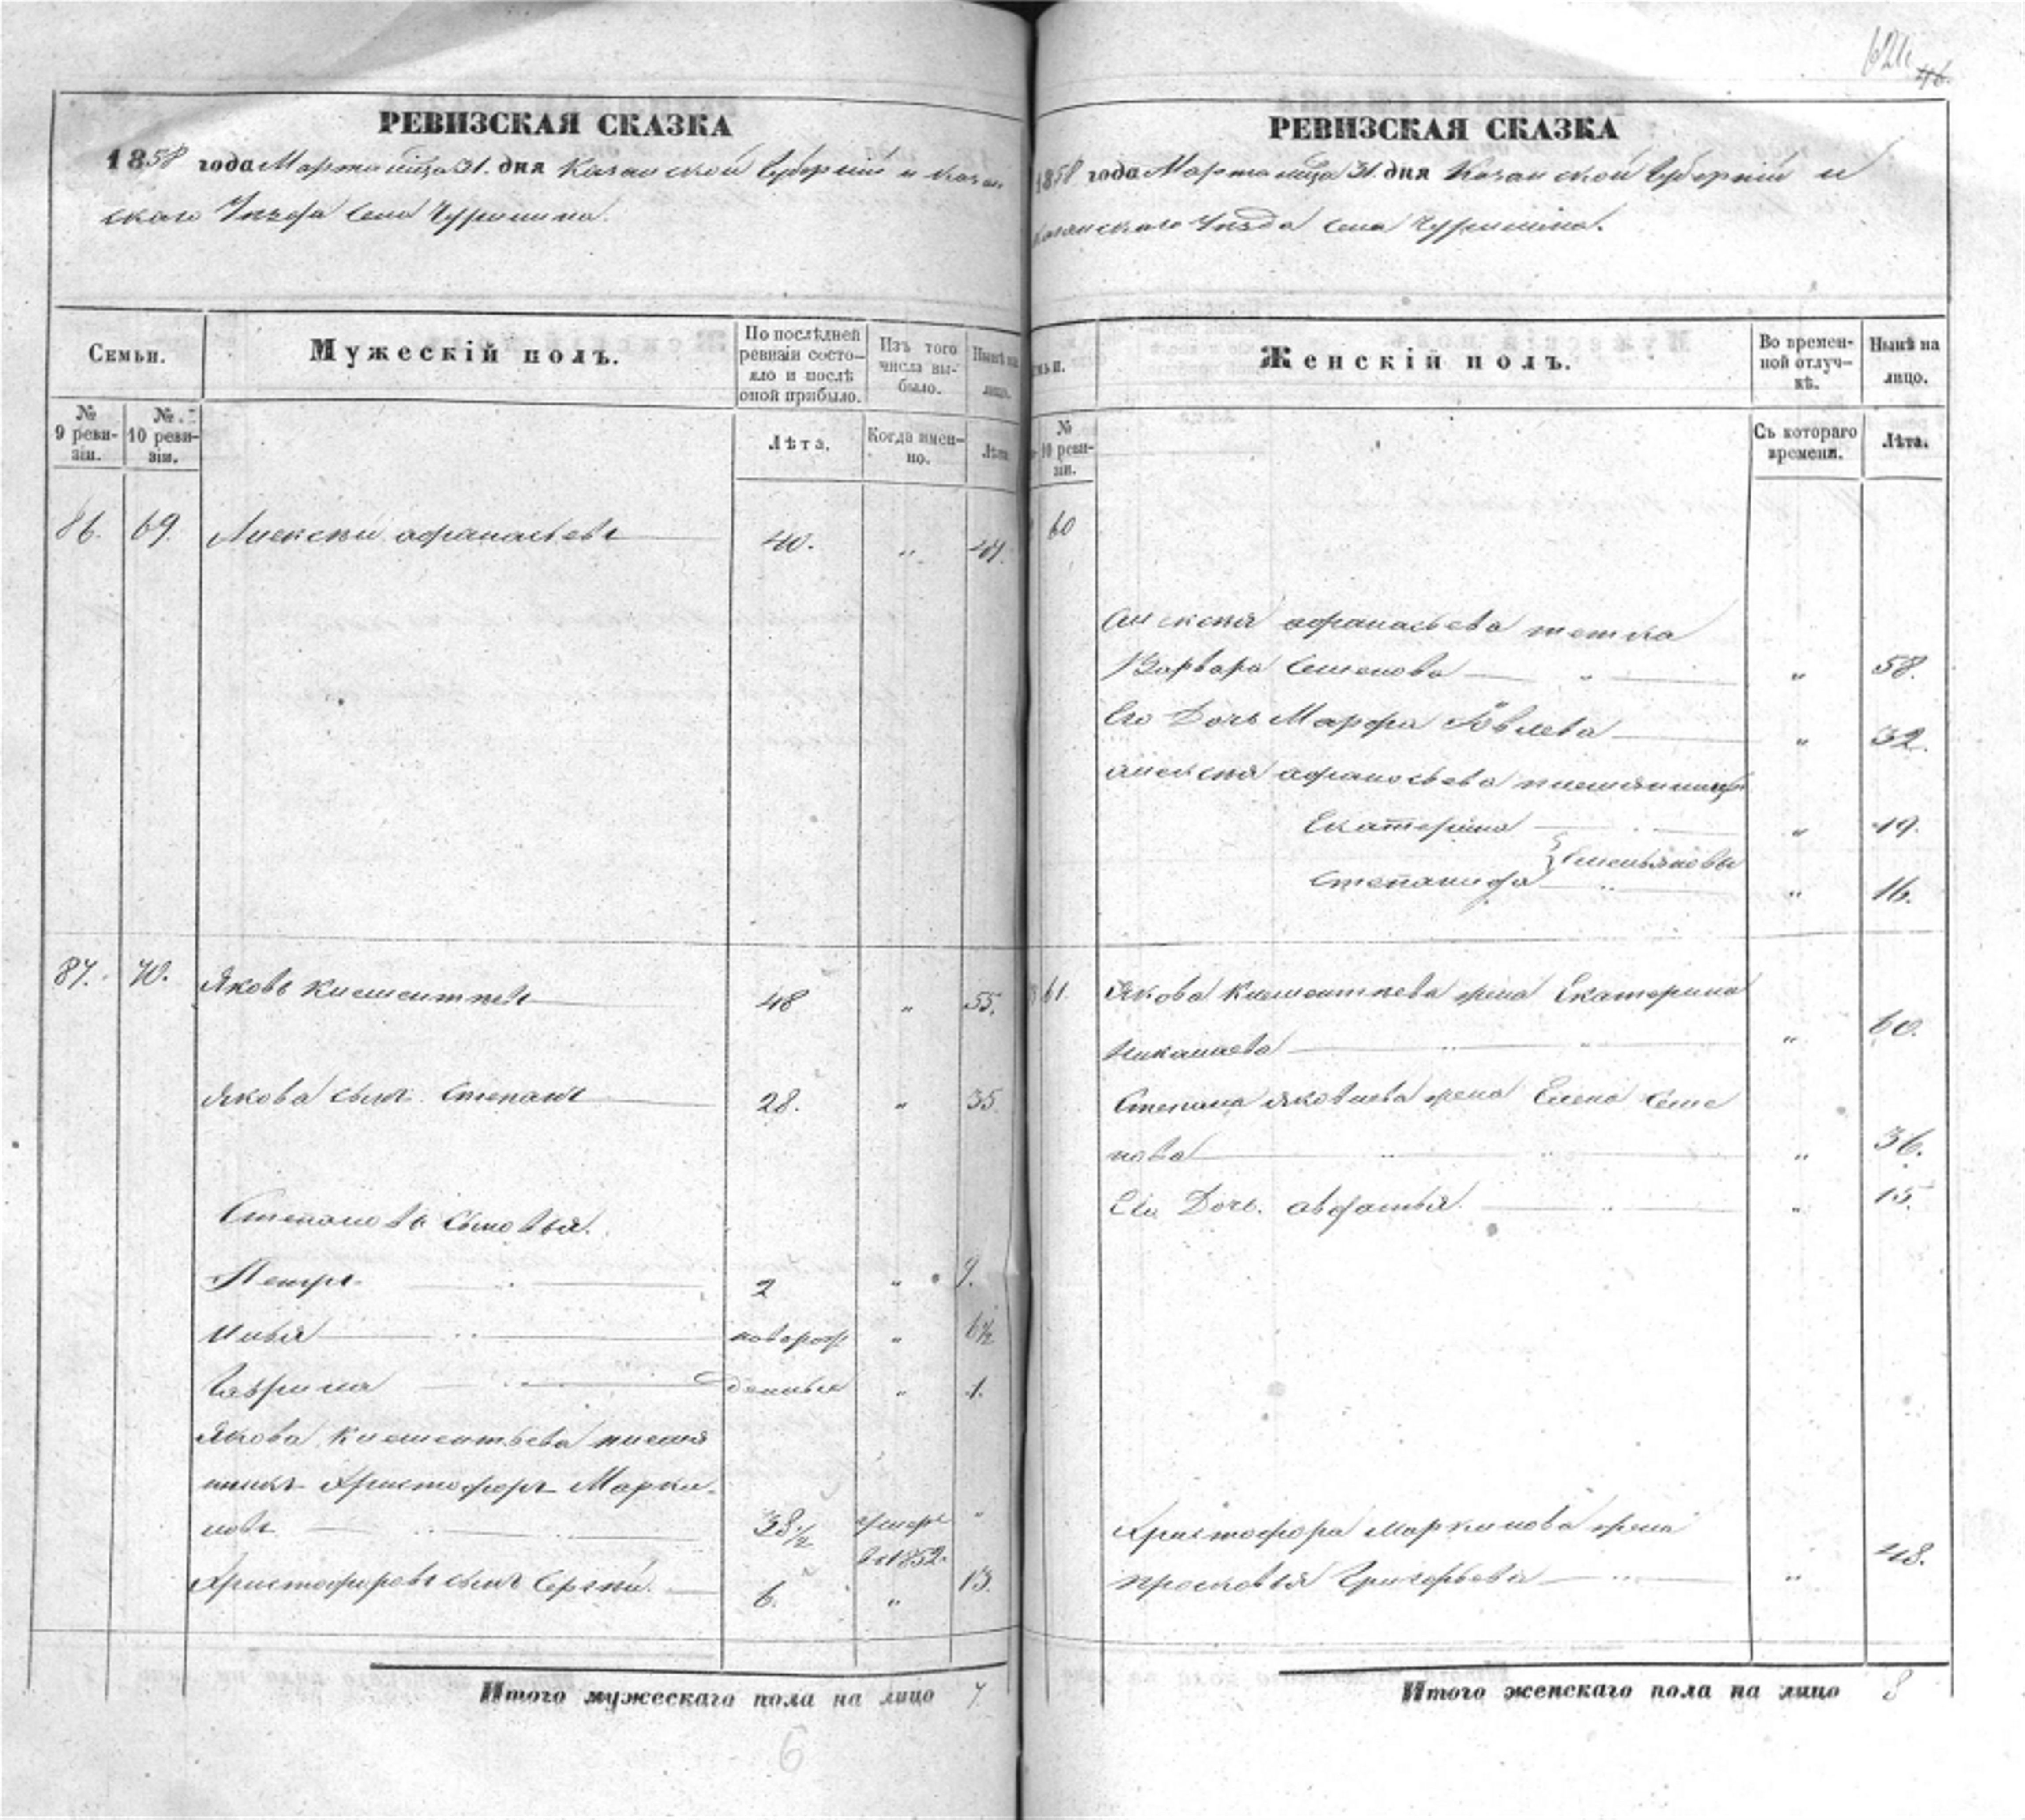 РЕВИЗСКАЯ СКАЗКА
1858 года Марта мца 31. дня Казанской Губернiи и Казан
скаго Уезда Села Чурилина.
Семьи.
Мужескiй полъ.
По послѣдней ревизiи состо-
яло и послѣ оной прибыло.
Изъ того числа вы-
было.
Нынѣ на лицо.
№ 9 реви-
зiи.
№ 10 реви-
зiи.
Лѣта.
Когда имен-
но.
Лѣта
86. 69. Алексѣй Афанасьевъ 40. „ 47.
87. 70. Яковъ Клементьевъ 48 „ 55.
Якова сынъ Степанъ 28. „ 35.
Степановы сыновья.
Петръ 2 „ 9.
Илья новорож „ 6½
Гаврила денные „ 1.
Якова Клементьева племя
нникъ Христофоръ Марки-
новъ 38½ умеръ „
въ 1852.
Христофоровъ сынъ Сергѣй. 6. „ 13.
Итого мужескаго пола на лицо 7
6
624
46.
РЕВИЗСКАЯ СКАЗКА
1858 года Марта мца 31. дня Казанской Губернiи и
Казанскаго Уезда Села Чурилина.
Женскiй полъ.
Во времен-
ной отлуч-
кѣ.
Нынѣ на лицо.
№ 10 реви-
зiи.
Съ котораго времени.
Лѣта.
60
Алексѣя Афанасьева тетка
Варвара Семенова „ 58.
Его Дочь Марфа Iовлева „ 32.
Алексѣя Афанасьева племянницы
Екатерина „ 19.
Емельяновы
Степанида „ 16.
61. Якова Клементьева жена Екатерина
Николаева „ 60.
Степана Яковлева жена Елена Семе
нова „ 36.
Его Дочь. Авдотья „ 15.
Христофора Маркинова жена
Просковья Григорьева „ 48.
Итого женскаго пола на лицо 8